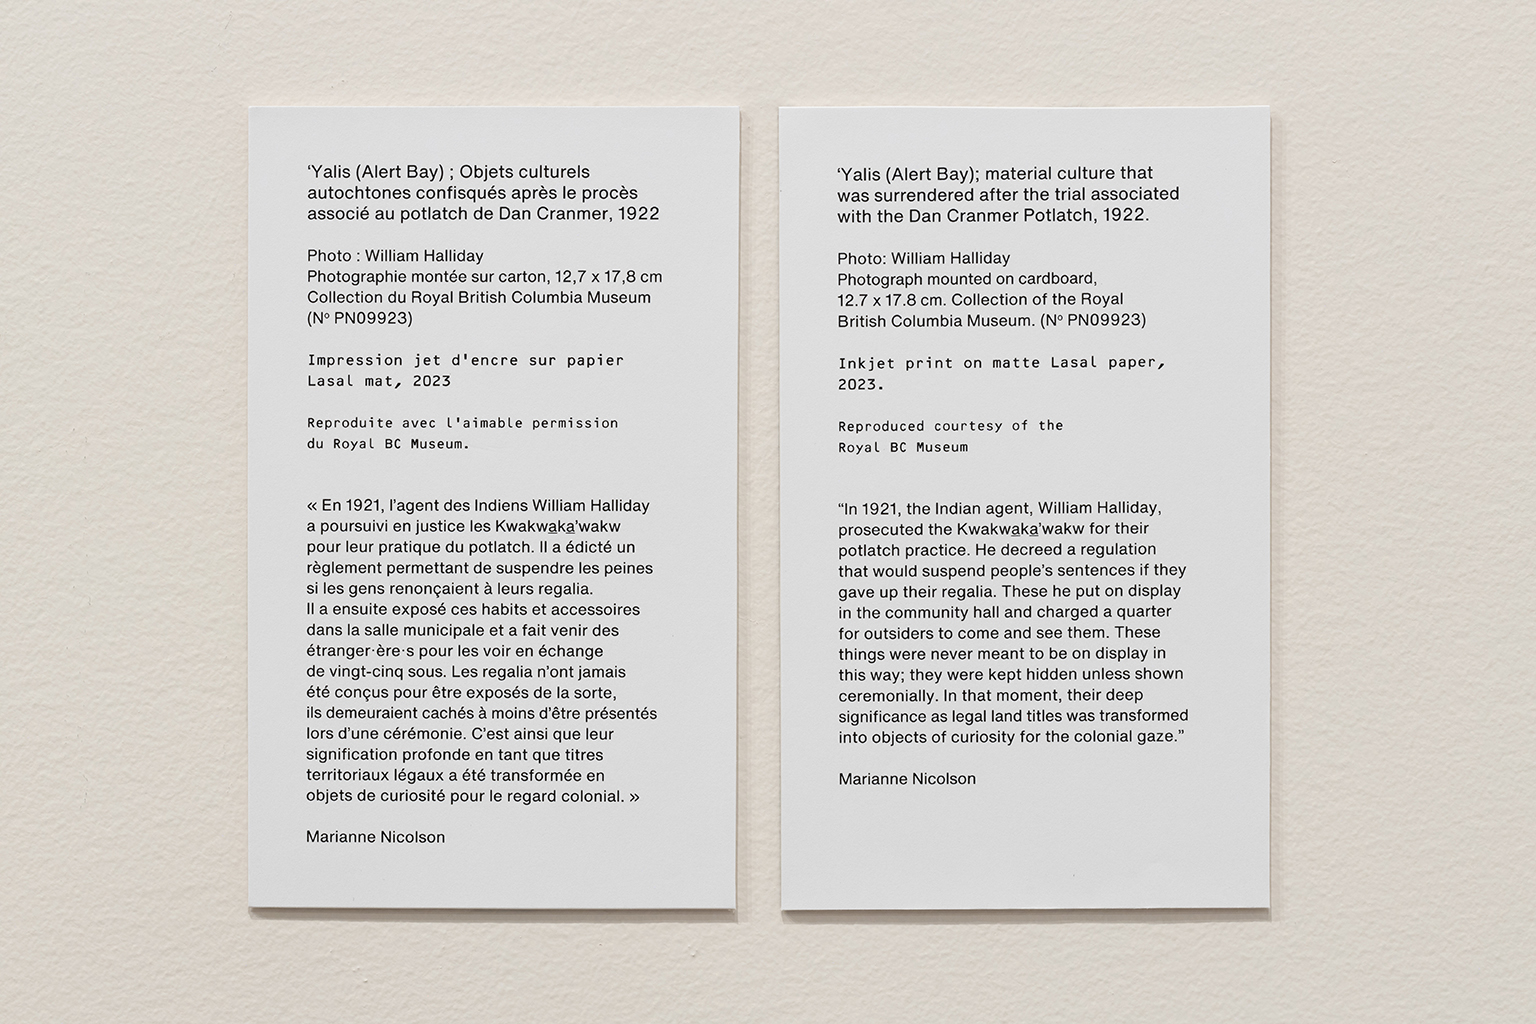 ‘Yalis (Alert Bay) ; Objets culturels
autochtones confisqués après le procès
associé au potlatch de Dan Cranmer, 1922
Photo : William Halliday
Photographie montée sur carton, 12,7 x 17,8 cm
Collection du Royal British Columbia Museum
(Nº PN09923)
Impression jet d'encre sur papier
Lasal mat, 2023
Reproduite avec l'aimable permission
du Royal BC Museum.
« En 1921, l’agent des Indiens William Halliday
a poursuivi en justice les Kwakwa̱ka̱’wakw
pour leur pratique du potlatch. Il a édicté un
règlement permettant de suspendre les peines
si les gens renonçaient à leurs regalia.
Il a ensuite exposé ces habits et accessoires
dans la salle municipale et a fait venir des
étranger·ère·s pour les voir en échange
de vingt-cinq sous. Les regalia n’ont jamais
été conçus pour être exposés de la sorte,
ils demeuraient cachés à moins d’être présentés
lors d’une cérémonie. C’est ainsi que leur
signification profonde en tant que titres
territoriaux légaux a été transformée en
objets de curiosité pour le regard colonial. »
Marianne Nicolson
‘Yalis (Alert Bay); material culture that
was surrendered after the trial associated
with the Dan Cranmer Potlatch, 1922.
Photo: William Halliday
Photograph mounted on cardboard,
12.7 x 17.8 cm. Collection of the Royal
British Columbia Museum. (Nº PN09923)
Inkjet print on matte Lasal paper,
2023.
Reproduced courtesy of the
Royal BC Museum
“In 1921, the Indian agent, William Halliday,
prosecuted the Kwakwa̱ka̱’wakw for their
potlatch practice. He decreed a regulation
that would suspend people’s sentences if they
gave up their regalia. These he put on display
in the community hall and charged a quarter
for outsiders to come and see them. These
things were never meant to be on display in
this way; they were kept hidden unless shown
ceremonially. In that moment, their deep
significance as legal land titles was transformed
into objects of curiosity for the colonial gaze.”
Marianne Nicolson